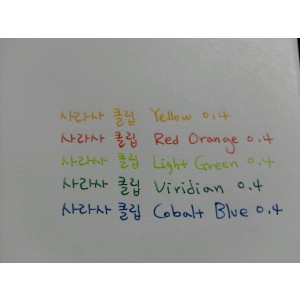 사라사 클립 Yellow 0.4
사라사 클립 Red Orange 0.4
사라사 클립 Light Green 0.4
사라사 클립 Viridian 0.4
사라사 클립 Cobalt Blue 0.4